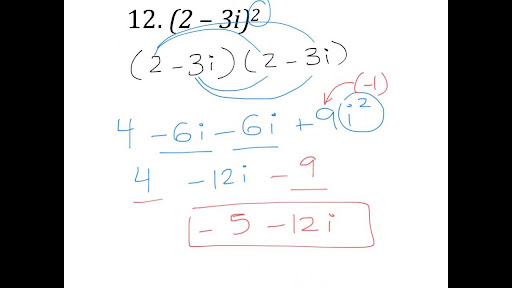 12. (2 – 3i)²
(2 - 3i)(2 - 3i)
(-1)
4 - 6i - 6i + 9i²
4 - 12i - 9
- 5 - 12i